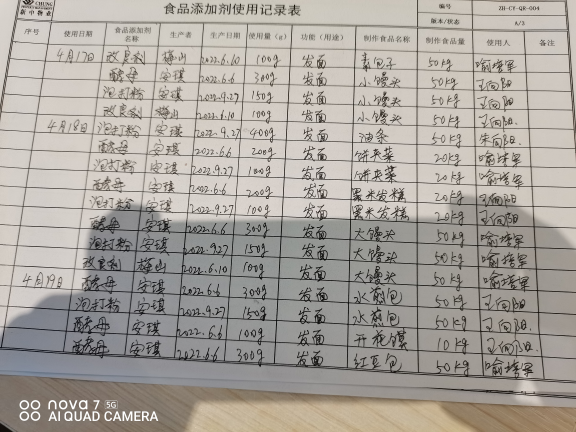 CHUNG
新中物业
食品添加剂使用记录表
编号 ZH-CY-QR-004
版本/状态 A/3
序号 使用日期 食品添加剂名称 生产者 生产日期 使用量(g) 功能(用途) 制作食品名称 制作食品量 使用人 备注
4月17日 改良剂 梅山 2022.6.10 100g 发面 素包子 50kg 喻增军
酵母 安琪 2022.6.6 300g 发面 小馒头 50kg 王向阳
泡打粉 安琪 2022.9.27 150g 发面 小馒头 50kg 王向阳
改良剂 梅山 2022.6.10 100g 发面 小馒头 50kg 王向阳
4月18日 泡打粉 安琪 2022.9.27 400g 发面 油条 50kg 朱向阳
酵母 安琪 2022.6.6 200g 发面 饼夹菜 20kg 喻增军
泡打粉 安琪 2022.9.27 100g 发面 饼夹菜 20kg 喻增军
酵母 安琪 2022.6.6 200g 发面 黑米发糕 20kg 王向阳
泡打粉 安琪 2022.9.27 100g 发面 黑米发糕 20kg 王向阳
酵母 安琪 2022.6.6 300g 发面 大馒头 50kg 喻增军
泡打粉 安琪 2022.9.27 150g 发面 大馒头 50kg 喻增军
改良剂 梅山 2022.6.10 100g 发面 大馒头 50kg 喻增军
4月19日 酵母 安琪 2022.6.6 300g 发面 水煎包 50kg 王向阳
泡打粉 安琪 2022.9.27 150g 发面 水煎包 50kg 王向阳
酵母 安琪 2022.6.6 100g 发面 开花馍 10kg 王向阳.
酵母 安琪 2022.6.6 300g 发面 红豆包 50kg 喻增军
nova 7 5G
AI QUAD CAMERA